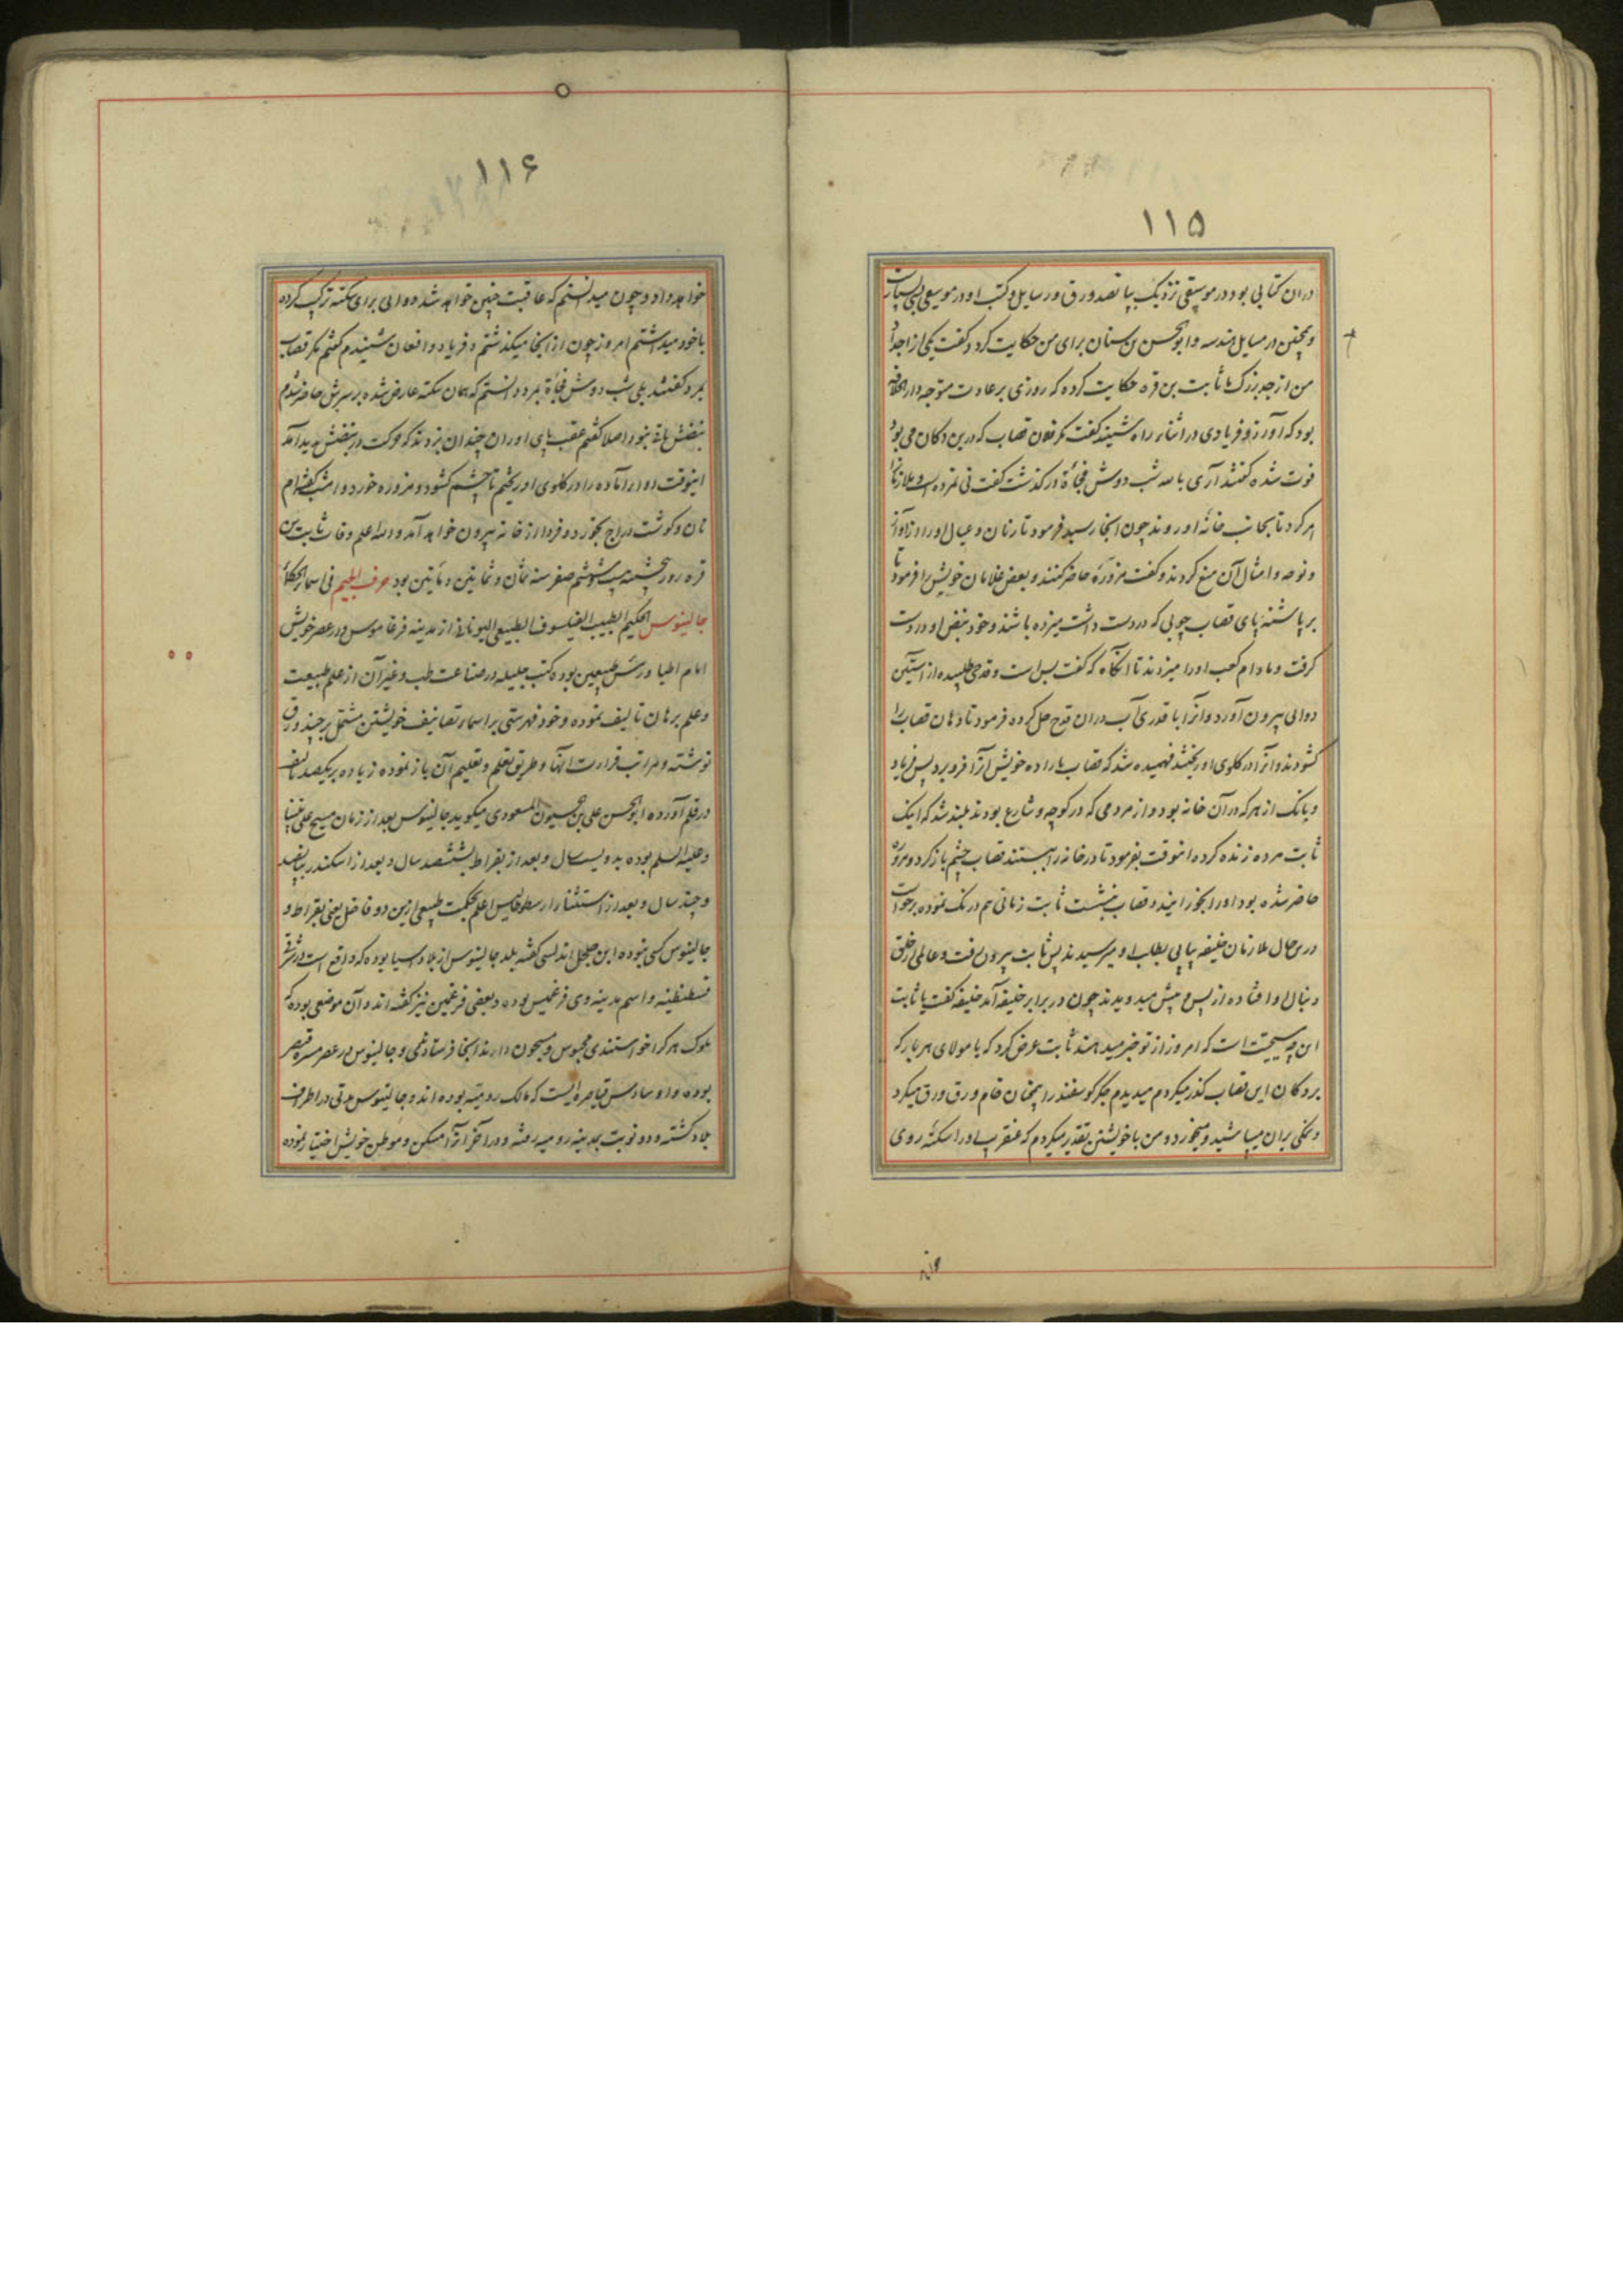 ۱۱۵
دران کتابی بود در موسیقی نزدیک بپانصد ورق و رسایل و کتب او در موسیقی بسیارست
و همچنین در مسایل هندسه و ابوالحسن بن سنان برای من حکایت کرد و گفت یکی از اجداد
من از جد بزرگ ما ثابت بن قره حکایت کرده که روزی بر عادت متوجه دار الخلافه
بود که آواز و فریادی در اثناء راه شنیند گفت مگر فلان قصاب که درین دکان می بود
فوت شده گفتند آری بالله شب دوش فجأة در گذشت گفت نی نمرده است و ملازمانرا
امر کرد تا بجانب خانه او روند چون آنجا رسید فرمود تا زنان و عیال او را از آواز
و نوحه و امثال آن منع کردند و گفت مزوره حاضر کنند و بعض غلامان خویش را فرمود تا
بر پاشنه پای قصاب چوبی که در دست داشت میزده باشند و خود نبض او در دست
گرفت و مادام کعب او را میزدند تا آنگاه که گفت بس است و قدحی طلبیده از آستین
دوائی بیرون آورد و آنرا با قدری آب دران قدح حل کرده فرمود تا دهان قصاب را
گشودند و آنرا در گلوی او ریختند فهمیده شد که قصاب باراده خویش آنرا فرو برد پس فریاد
و بانگ از هر که در آن خانه بود و از مردمی که در کوچه و شارع بودند بلند شد که اینک
ثابت مرده زنده کرده انوقت بفرمود تا در خانه را ببستند قصاب چشم باز کرد و مزوره
حاضر شده بود او را بخورانیدند قصاب بنشست ثابت زمانی هم درنگ نموده برخواست
درین حال ملازمان خلیفه پیاپی بطلب او میرسیدند پس ثابت بیرون رفت و عالمی از خلق
دنبال او افتاده از پس و پیش میدویدند چون در برابر خلیفه آمد خلیفه گفت یا ثابت
این چه مسیحیت است که امروز از تو خبر میدهند ثابت عرض کرد که یا مولای هر بار که
بر دکان این قصاب گذر میکردم میدیدم جگر گوسفند را همچنان خام ورق ورق میکرد
و نمکی بران میپاشید و میخورد و من با خویشتن تقدیر میکردم که عنقریب او را سکته روی
۱۱۶
خواهد داد و چون میدانستم که عاقبت چنین خواهد شد دوائی برای سکته ترکیب کرده
با خود میداشتم امروز چون از انجا میگذشتم و فریاد و افغان شنیدم گفتم مگر قصاب
بمرد گفتند بلی شب دوش فجأة بمرد دانستم که همان سکته عارض شده بر سرش حاضر شدم
نبضش یافته نبود اصلا گفتم عقب پای او را ان چندان بزدند که حرکت در نبضش پدید آمد
اینوقت دوا را آماده را در گلوی او ریختم تا چشم گشود و مزوره خورد و امشب گفته ام
نان و گوشت دراج بخورد و فردا از خانه بیرون خواهد آمد والله اعلم وفات ثابت بن
قره روز پنجشنبه بیست و ششم صفر سنه ثمان و ثمانین و مأتین بود حرف الجیم فی اسماء الحکماء
جالینوس الحکیم الطبیب الفیلسوف الطبیعی الیونانی از مدینه فرغاموس در عصر خویش
امام اطبا و رئیس طبیعیین بوده کتب جلیله در صناعت طب و غیر آن از علم طبیعت
و علم برهان تالیف نموده و خود فهرستی بر اسماء تصانیف خویشتن مشتمل بر چند ورق
نوشته و مراتب قراءت آنها و طریق تعلم و تعلیم آن باز نموده زیاده بر یکصد تالیف
در قلم آورده ابوالحسن علی بن حسین المسعودی میگوید جالینوس بعد از زمان مسیح علی نبینا
و علیه السلم بوده بدویست سال و بعد از بقراط بششصد سال و بعد از اسکندر بپانصد
و چند سال و بعد از استثناء ارسطوطالیس اعلم بحکمت طبیعی ازین دو فاضل یعنی بقراط و
جالینوس کسی نبوده ابن جلجل اندلسی گفته بلد جالینوس از بلاد اسیا بوده که واقع است در شرقی
قسطنطنیه و اسم مدینه وی فرغمیس بوده و بعضی فرغمین نیز گفته اند و آن موضعی بوده که
ملوک هر کرا خواستندی محبوس و مسجون دارند آنجا فرستادندی و جالینوس در عصر قیصر
بوده و او سادس قیاصره ایست که مالک رومیه بوده اند و جالینوس مدتی در اطراف
بلاد گشته و دو نوبت بمدینه رومیه رفته و در آخر آنرا مسکن و موطن خویش اختیار نموده